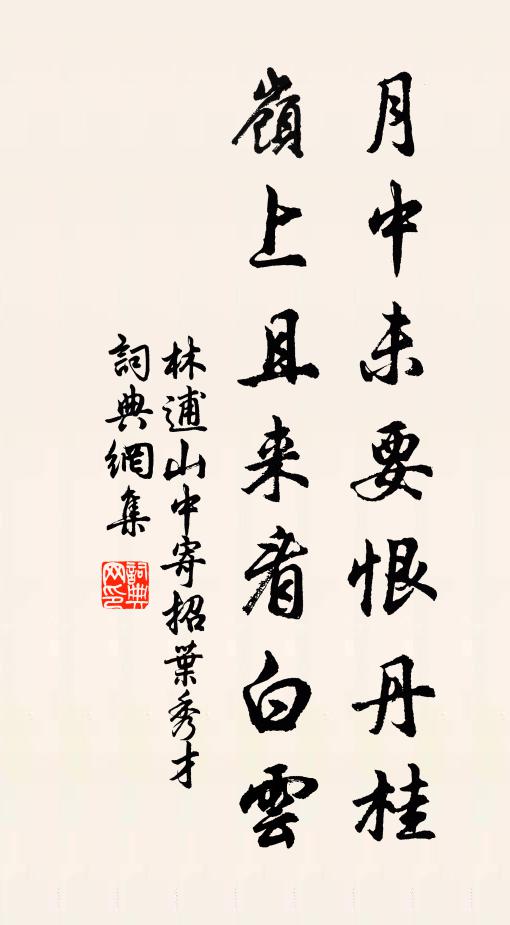 月中未要恨丹桂
嶺上且来看白雲
林逋山中寄招葉秀才
詞典網集
詞典網印